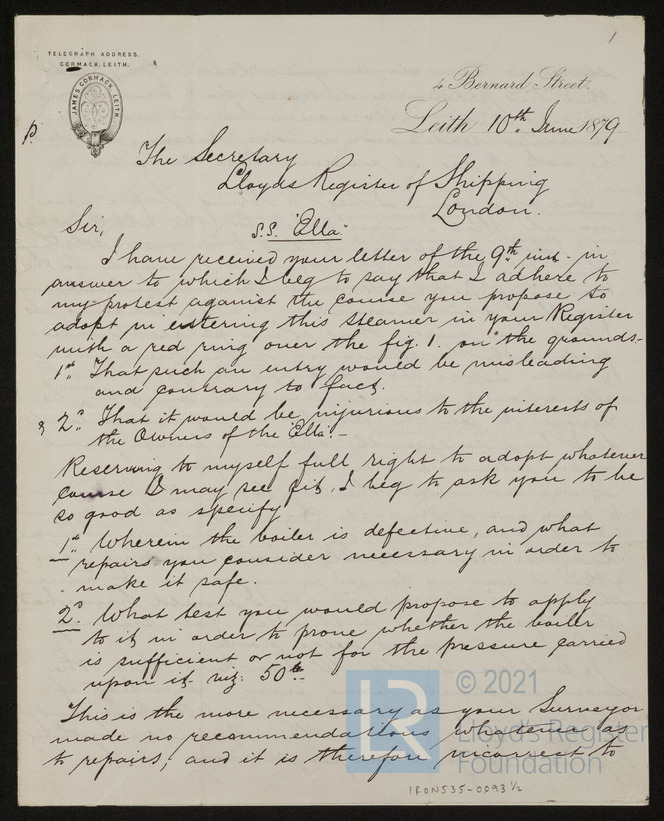 1
TELEGRAPH ADDRESS.
CORMACK, LEITH.
JAMES CORMACK LEITH.
4 Bernard Street.
Leith 10th June 1879
The Secretary
Lloyds Register of Shipping
London.
Sir,
S.S. "Ella"
I have received your letter of the 9th inst. in
answer to which I beg to say that I adhere to
my protest against the course you propose to
adopt in entering this steamer in your Register
with a red ring over the fig. 1. on the grounds-
1st That such an entry would be misleading
and contrary to fact.
& 2d That it would be injurious to the interests of
the Owners of the "Ella".-
Reserving to myself full right to adopt whatever
course I may see fit, I beg to ask you to be
so good as specify
1st. Wherein the boiler is defective, and what
repairs you consider necessary in order to
make it safe.
2d. What test you would propose to apply
to it in order to prove whether the boiler
is sufficient or not for the pressure carried
upon it viz: 50 lb.
This is the more necessary as your Surveyor
made no recommendations whatever as
to repairs, and it is therefore incorrect to
LR
© 2021
Lloyd's Register
Foundation
IRON535-0093 1/2